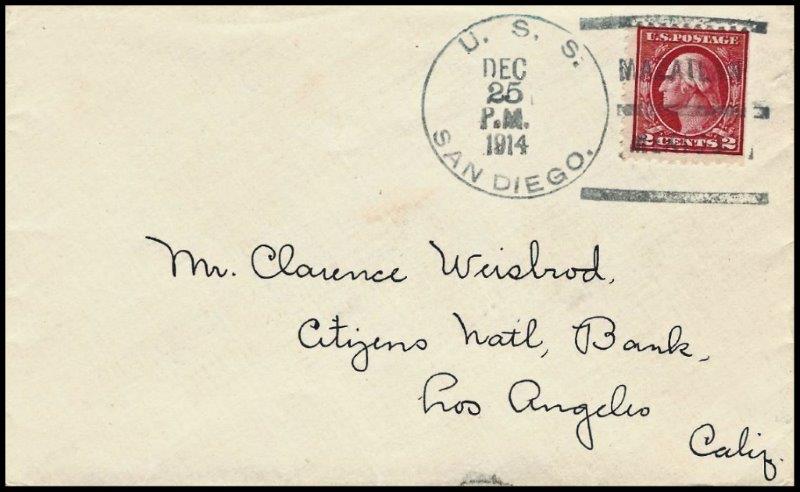 U. S. S.
DEC
25
P.M.
1914
SAN DIEGO.
U.S.POSTAGE
2 CENTS 2
Mr. Clarence Weisbrod,
Citizens Natl, Bank,
Los Angeles
Calif.